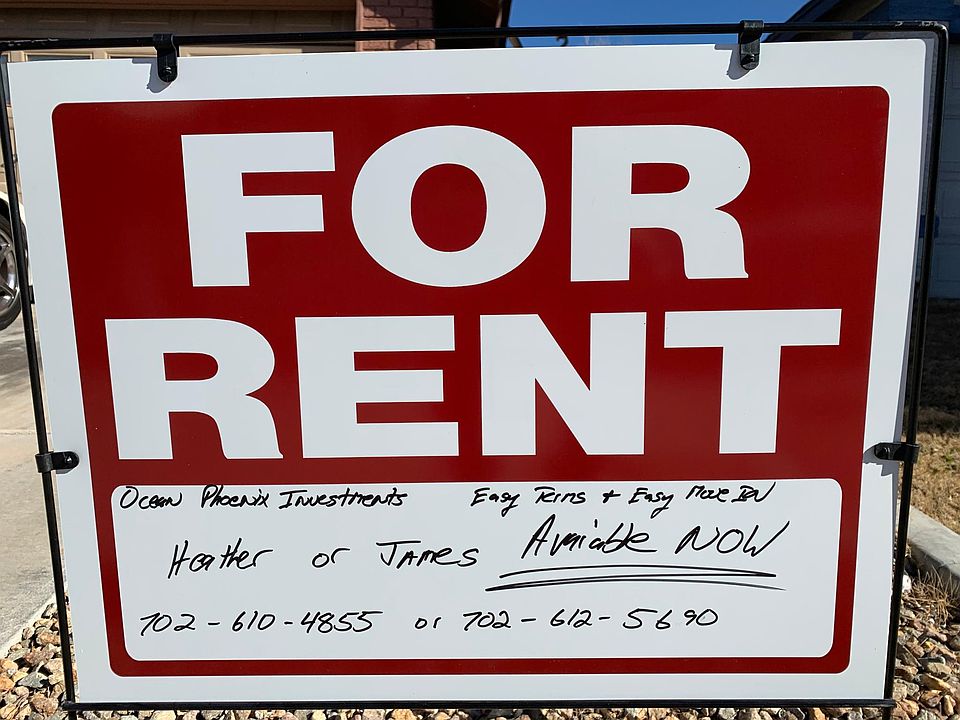 FOR
RENT
Ocean Phoenix Investments Easy Terms + Easy Move IN
Heather or James Available NOW
702-610-4855 or 702-612-5690